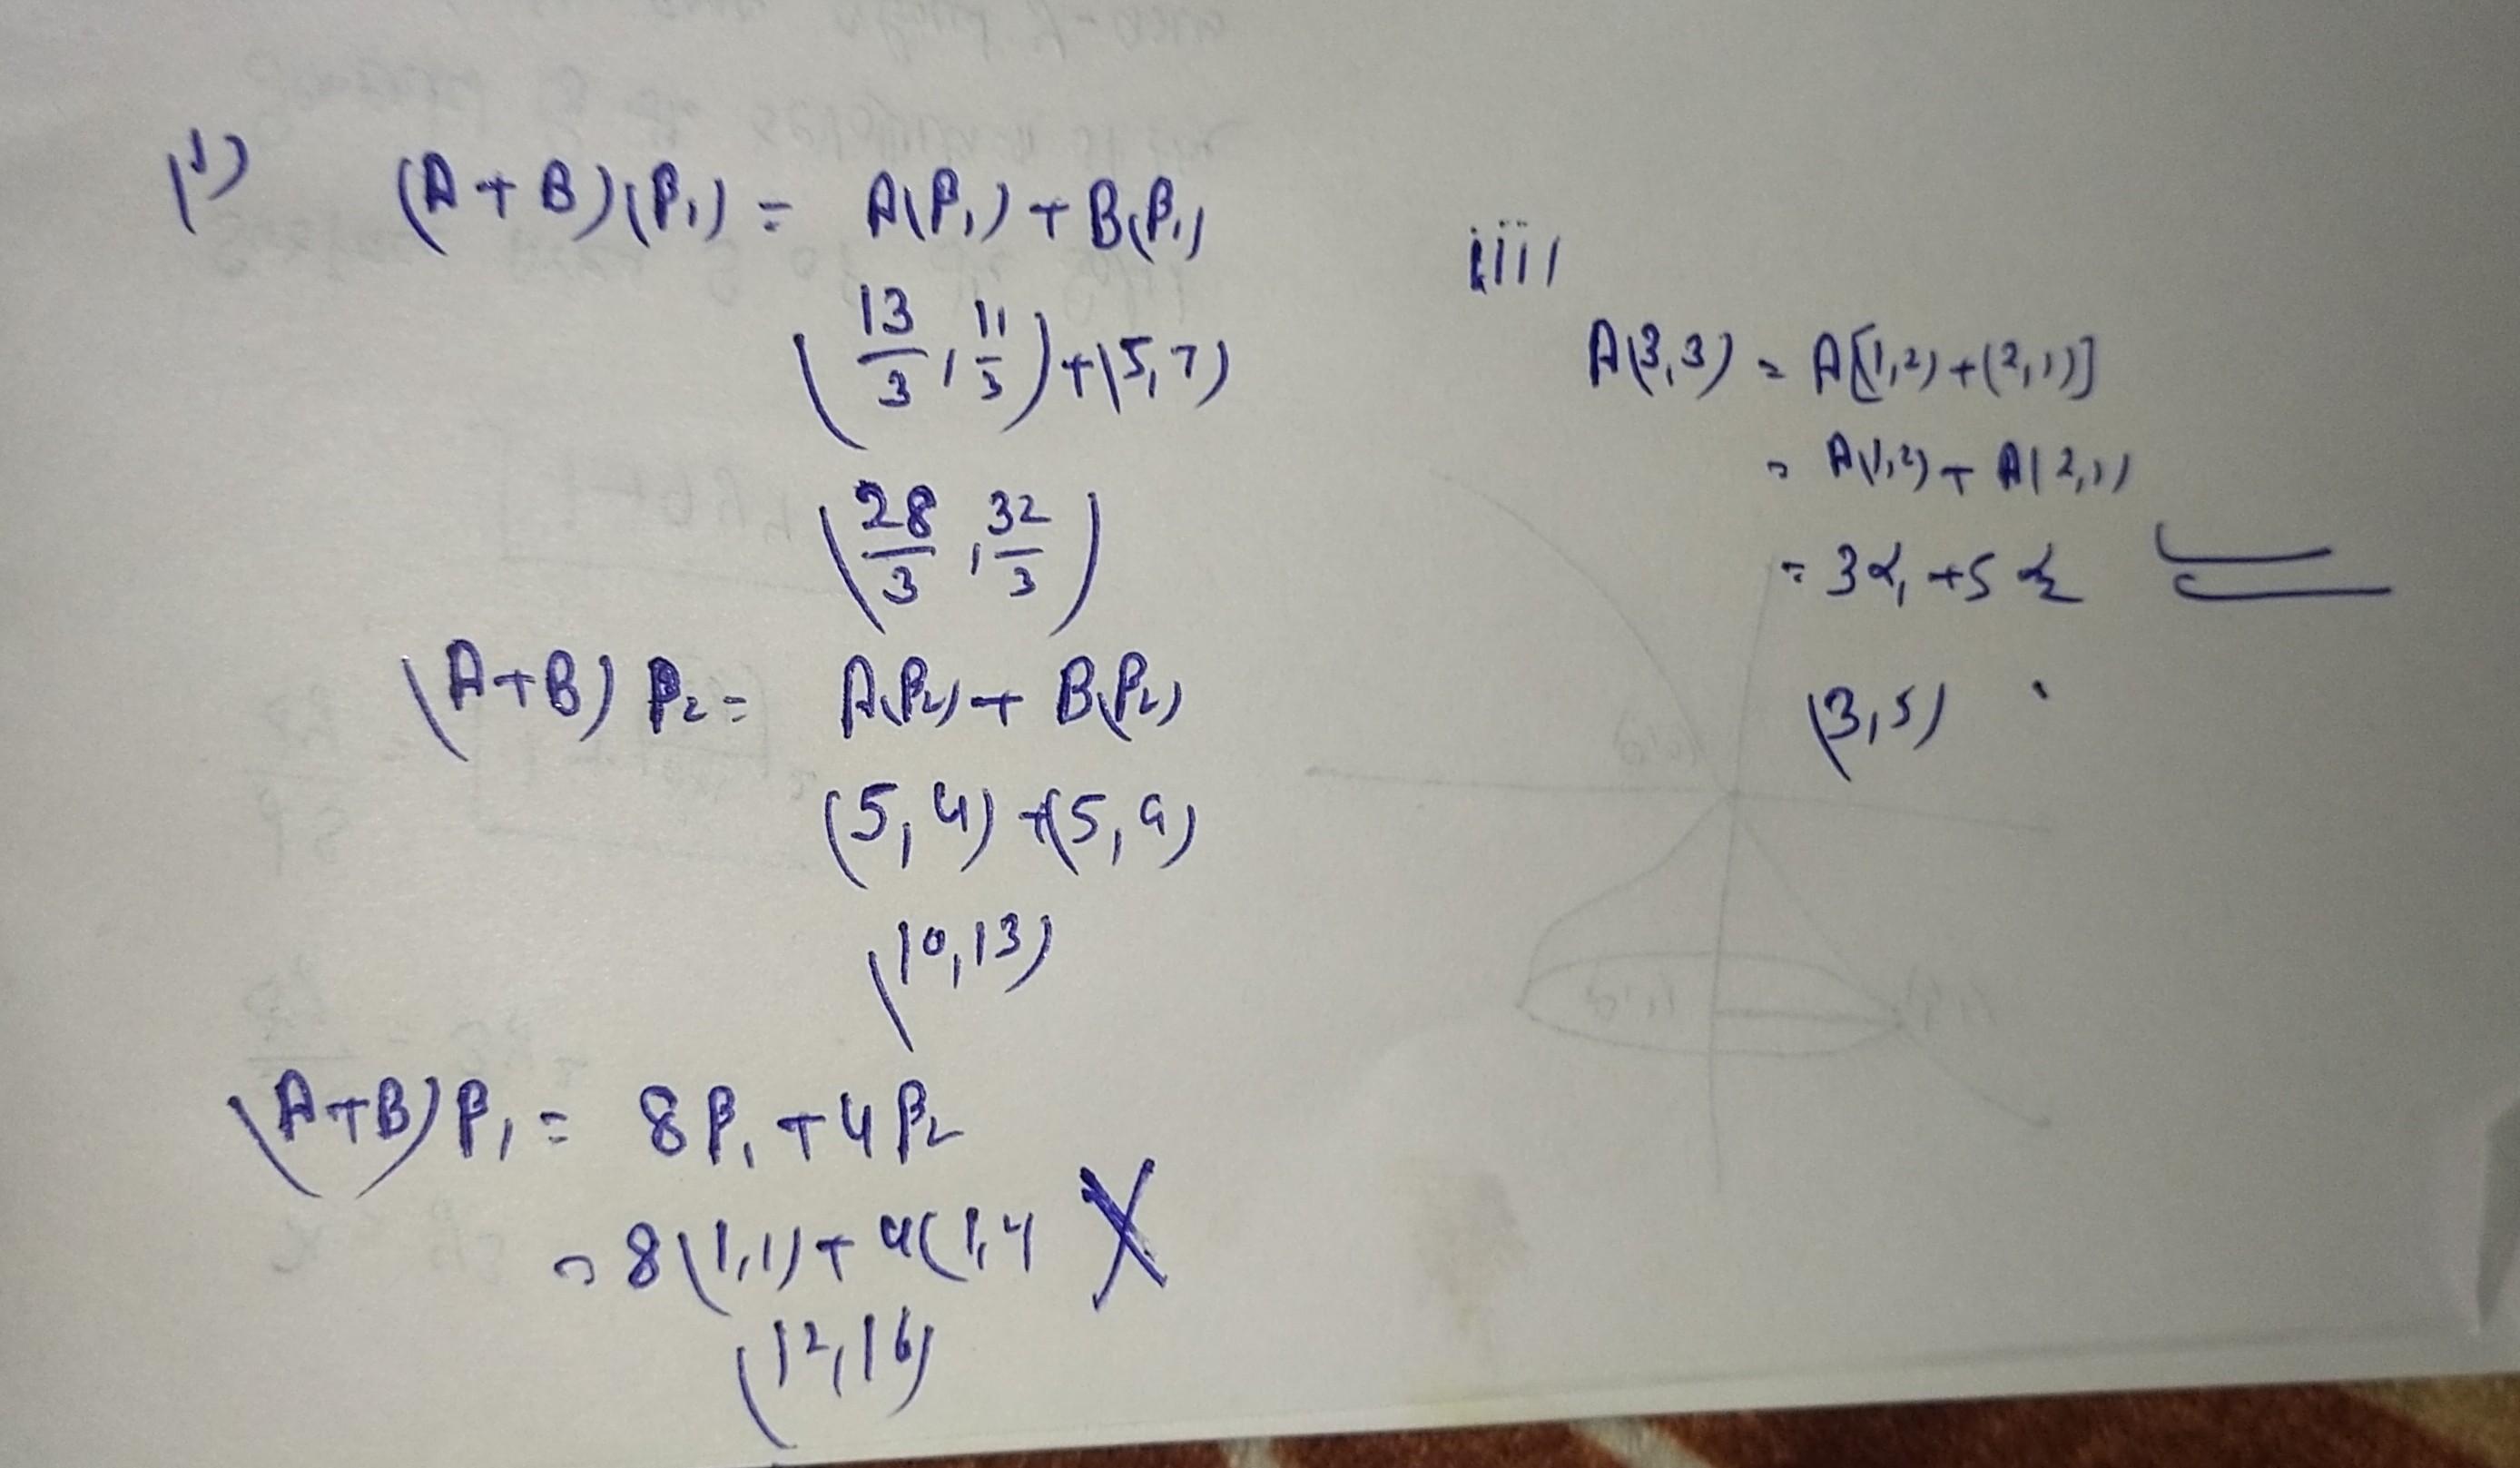 i)
(A + B)(β₁) = A(β₁) + B(β₁)
(13/3, 11/3) + (5, 7)
(28/3, 32/3)
(A + B) β₂ = A(β₂) + B(β₂)
(5, 4) + (5, 9)
(10, 13)
(A + B) β₁ = 8β₁ + 4β₂
= 8(1,1) + 4(1,4
(12, 16)
iii)
A(3,3) = A[(1,2) + (2,1)]
= A(1,2) + A(2,1)
= 3α₁ + 5α₂
(3,5)